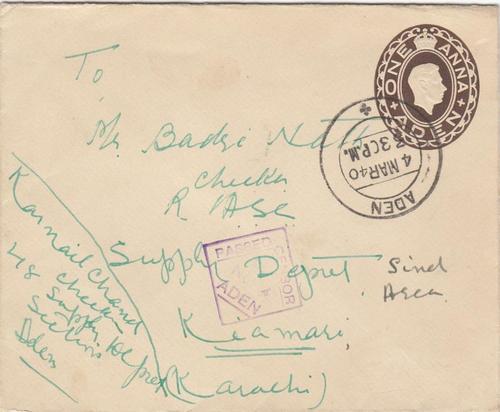 ONE ANNA
ADEN
ADEN
4 MAR 40
3 30 P.M.
To
Mr Badri Nath
Checker
R IASC
Supply Depot
Kiamari
(Karachi)
Sind
Area
PASSED
CENSOR
ADEN
Karnail Chand
Checker
Supply Depot
Section
Aden